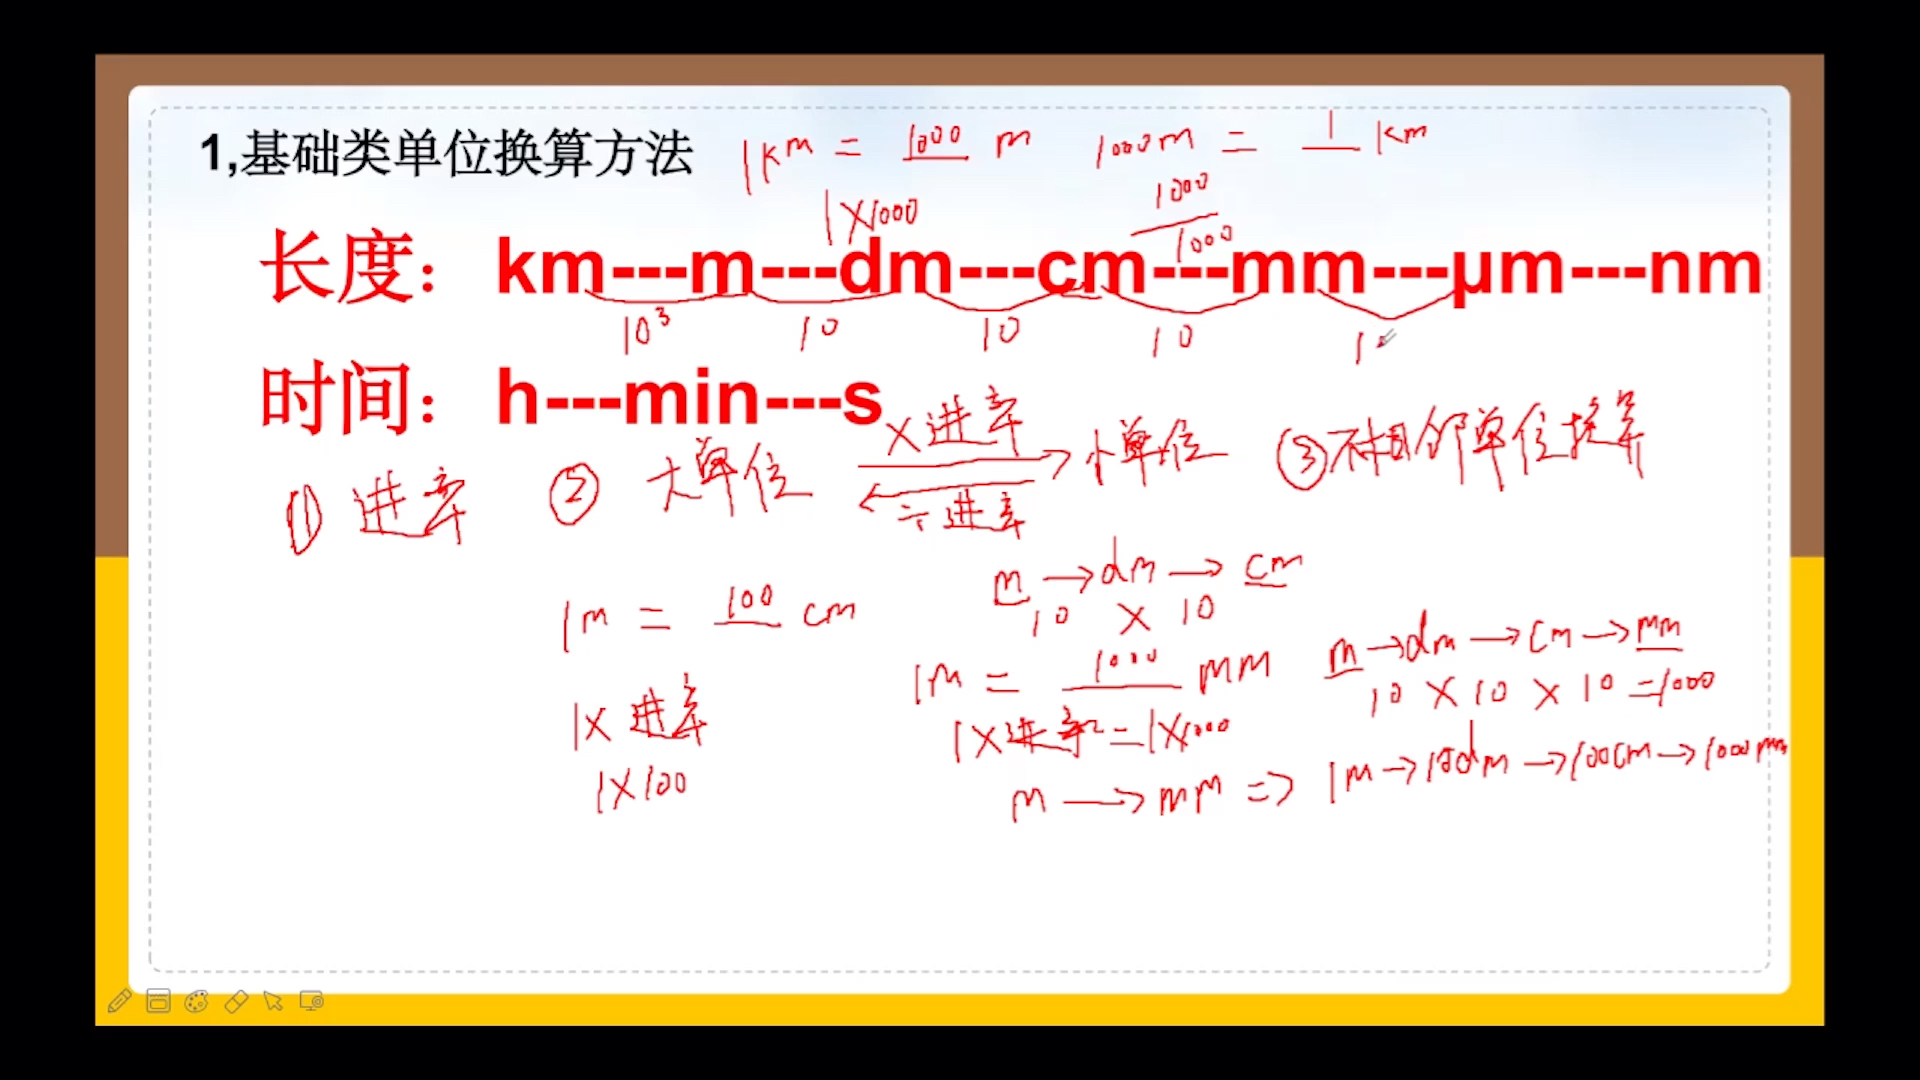 1,基础类单位换算方法
1km = 1000 m 1000m = 1 km
1×1000
1000
1000
长度： km---m---dm---cm---mm---μm---nm
10³ 10 10 10 1
时间： h---min---s
① 进率 ② 大单位 ×进率 小单位 ③不相邻单位换算
÷进率
m → dm → cm
10 × 10
1m = 100 cm
1m = 1000 mm
m → dm → cm → mm
10 × 10 × 10 = 1000
1×进率
1×进率 = 1×1000
1×100
m → mm ⇒ 1m → 10dm → 100cm → 1000mm